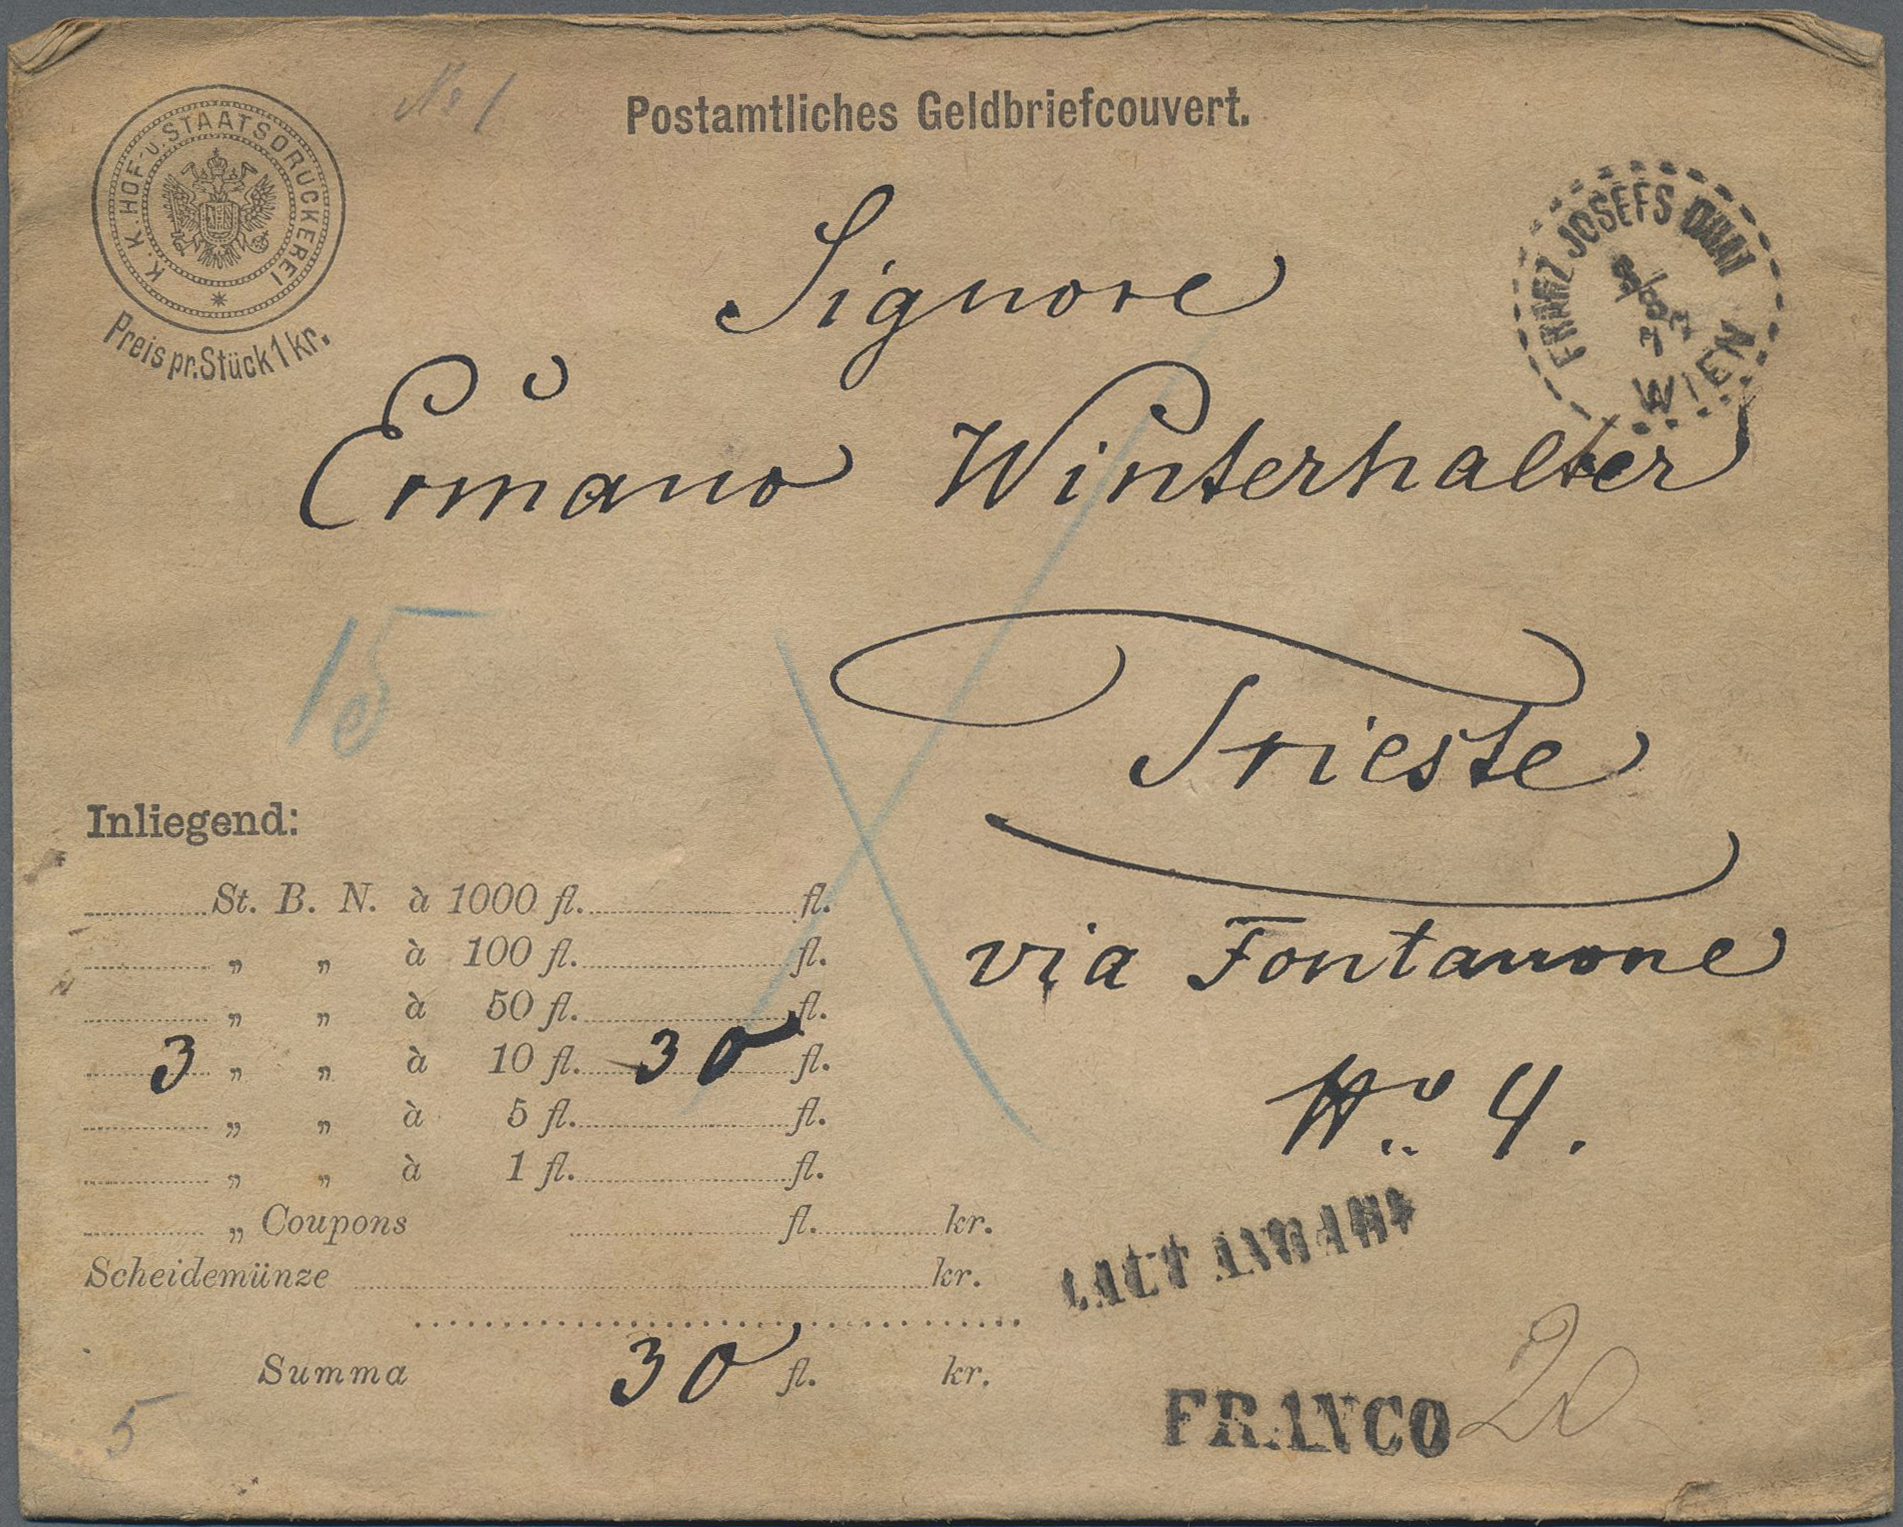 K. K. HOF- U. STAATSDRUCKEREI
Preis pr. Stück 1 kr.
No 1
Postamtliches Geldbriefcouvert.
FRANZ JOSEFS QUAI
WIEN
Signore
Ermano Winterhalter
Trieste
via Fontanone
No. 4.
15
Inliegend:
St. B. N. à 1000 fl. fl.
„ „ à 100 fl. fl.
„ „ à 50 fl. fl.
3 „ „ à 10 fl. 30 fl.
„ „ à 5 fl. fl.
„ „ à 1 fl. fl.
„ Coupons fl. kr.
Scheidemünze kr.
Summa 30 fl. kr.
LAUT
FRANCO
20
5